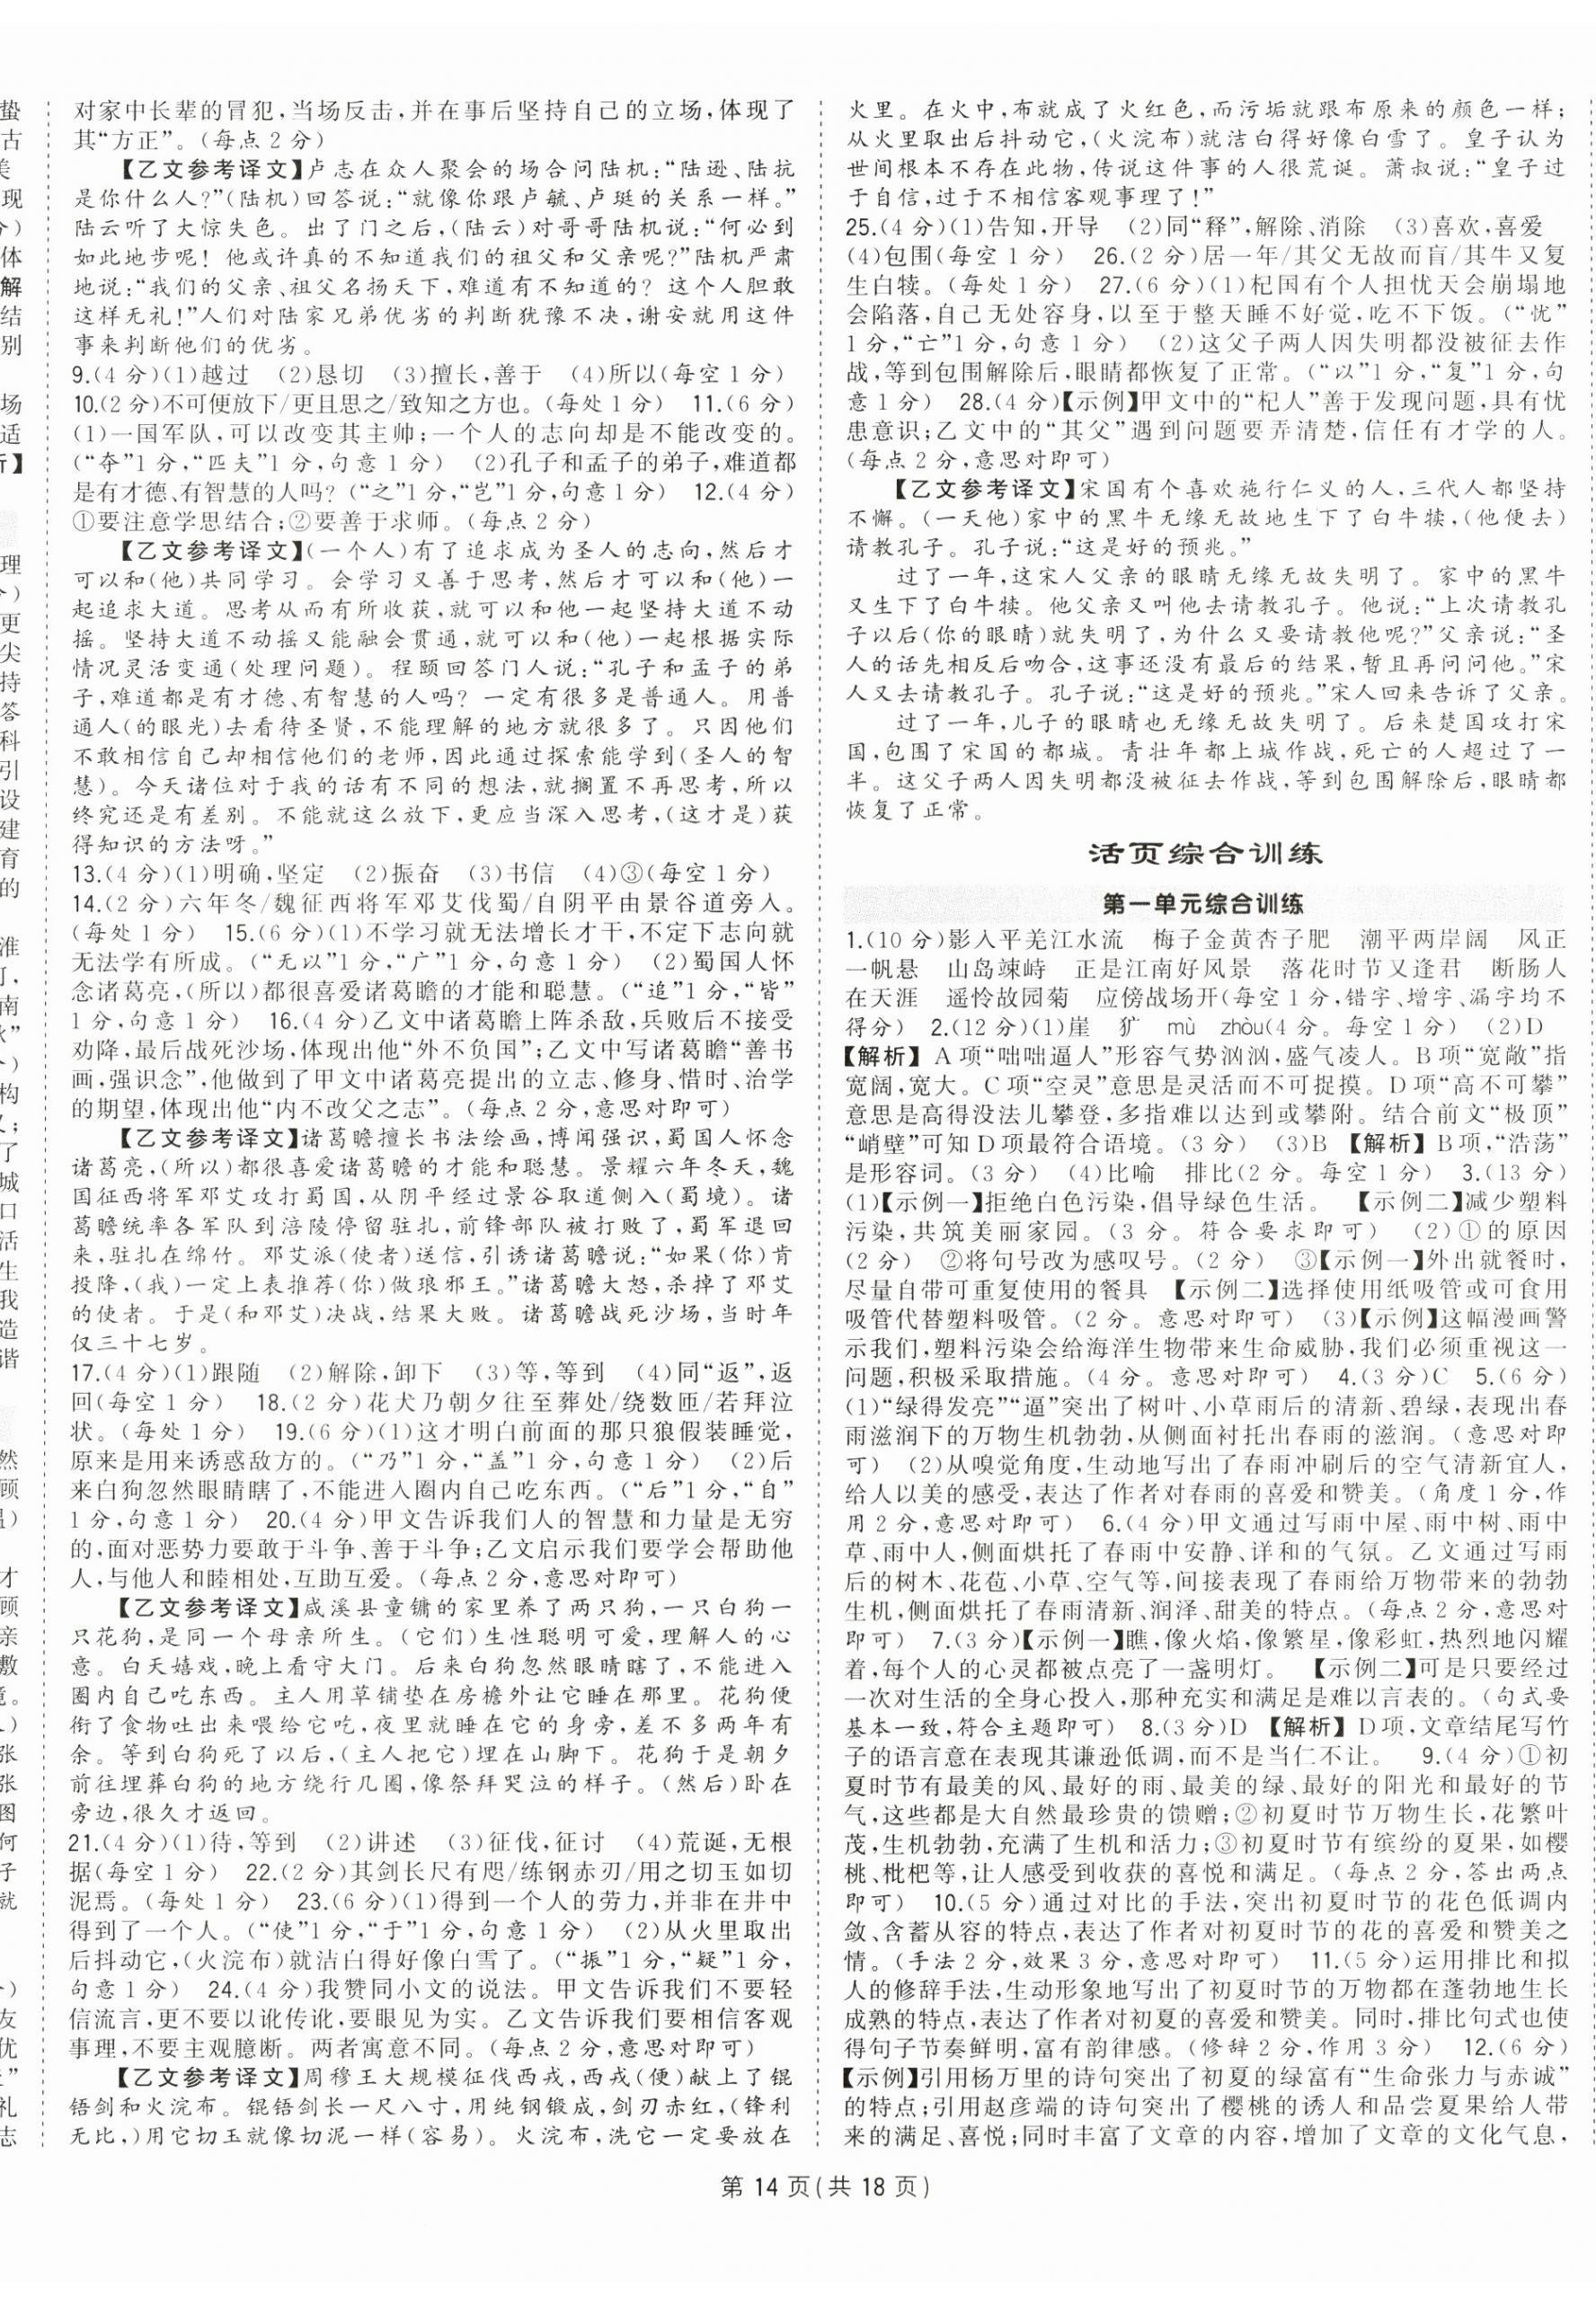 对家中长辈的冒犯,当场反击,并在事后坚持自己的立场,体现了
其“方正”。(每点 2 分)
【乙文参考译文】卢志在众人聚会的场合问陆机:“陆逊、陆抗
是你什么人?”(陆机)回答说:“就像你跟卢毓、卢珽的关系一样。”
陆云听了大惊失色。出了门之后,(陆云)对哥哥陆机说:“何必到
如此地步呢! 他或许真的不知道我们的祖父和父亲呢?”陆机严肃
地说:“我们的父亲、祖父名扬天下,难道有不知道的? 这个人胆敢
这样无礼!”人们对陆家兄弟优劣的判断犹豫不决,谢安就用这件
事来判断他们的优劣。
9.(4 分)(1)越过 (2)恳切 (3)擅长,善于 (4)所以(每空 1 分)
10.(2 分)不可便放下/更且思之/致知之方也。(每处 1 分) 11.(6 分)
(1)一国军队,可以改变其主帅;一个人的志向却是不能改变的。
(“夺”1 分,“匹夫”1 分,句意 1 分) (2)孔子和孟子的弟子,难道都
是有才德、有智慧的人吗? (“之”1 分,“岂”1 分,句意 1 分) 12.(4 分)
①要注意学思结合;②要善于求师。(每点 2 分)
【乙文参考译文】(一个人)有了追求成为圣人的志向,然后才
可以和(他)共同学习。会学习又善于思考,然后才可以和(他)一
起追求大道。思考从而有所收获,就可以和他一起坚持大道不动
摇。坚持大道不动摇又能融会贯通,就可以和(他)一起根据实际
情况灵活变通(处理问题)。程颐回答门人说:“孔子和孟子的弟
子,难道都是有才德、有智慧的人吗? 一定有很多是普通人。用普
通人(的眼光)去看待圣贤,不能理解的地方就很多了。只因他们
不敢相信自己却相信他们的老师,因此通过探索能学到(圣人的智
慧)。今天诸位对于我的话有不同的想法,就搁置不再思考,所以
终究还是有差别。不能就这么放下,更应当深入思考,(这才是)获
得知识的方法呀。”
13.(4 分)(1)明确,坚定 (2)振奋 (3)书信 (4)③(每空 1 分)
14.(2 分)六年冬/魏征西将军邓艾伐蜀/自阴平由景谷道旁入。
(每处 1 分) 15.(6 分)(1)不学习就无法增长才干,不定下志向就
无法学有所成。(“无以”1 分,“广”1 分,句意 1 分) (2)蜀国人怀
念诸葛亮,(所以)都很喜爱诸葛瞻的才能和聪慧。(“追”1 分,“皆”
1 分,句意 1 分) 16.(4 分)乙文中诸葛瞻上阵杀敌,兵败后不接受
劝降,最后战死沙场,体现出他“外不负国”;乙文中写诸葛瞻“善书
画,强识念”,他做到了甲文中诸葛亮提出的立志、修身、惜时、治学
的期望,体现出他“内不改父之志”。(每点 2 分,意思对即可)
【乙文参考译文】诸葛瞻擅长书法绘画,博闻强识,蜀国人怀念
诸葛亮,(所以)都很喜爱诸葛瞻的才能和聪慧。景耀六年冬天,魏
国征西将军邓艾攻打蜀国,从阴平经过景谷取道侧入(蜀境)。诸
葛瞻统率各军队到涪陵停留驻扎,前锋部队被打败了,蜀军退回
来,驻扎在绵竹。邓艾派(使者)送信,引诱诸葛瞻说:“如果(你)肯
投降,(我)一定上表推荐(你)做琅邪王。”诸葛瞻大怒,杀掉了邓艾
的使者。于是(和邓艾)决战,结果大败。诸葛瞻战死沙场,当时年
仅三十七岁。
17.(4 分)(1)跟随 (2)解除,卸下 (3)等,等到 (4)同“返”,返
回(每空 1 分) 18.(2 分)花犬乃朝夕往至葬处/绕数匝/若拜泣
状。(每处 1 分) 19.(6 分)(1)这才明白前面的那只狼假装睡觉,
原来是用来诱惑敌方的。(“乃”1 分,“盖”1 分,句意 1 分) (2)后
来白狗忽然眼睛瞎了,不能进入圈内自己吃东西。(“后”1 分,“自”
1 分,句意 1 分) 20.(4 分)甲文告诉我们人的智慧和力量是无穷
的,面对恶势力要敢于斗争、善于斗争;乙文启示我们要学会帮助他
人,与他人和睦相处,互助互爱。(每点 2 分,意思对即可)
【乙文参考译文】咸溪县童镛的家里养了两只狗,一只白狗一
只花狗,是同一个母亲所生。(它们)生性聪明可爱,理解人的心
意。白天嬉戏,晚上看守大门。后来白狗忽然眼睛瞎了,不能进入
圈内自己吃东西。主人用草铺垫在房檐外让它睡在那里。花狗便
衔了食物吐出来喂给它吃,夜里就睡在它的身旁,差不多两年有
余。等到白狗死了以后,(主人把它)埋在山脚下。花狗于是朝夕
前往埋葬白狗的地方绕行几圈,像祭拜哭泣的样子。(然后)卧在
旁边,很久才返回。
21.(4 分)(1)待,等到 (2)讲述 (3)征伐,征讨 (4)荒诞,无根
据(每空 1 分) 22.(2 分)其剑长尺有咫/练钢赤刃/用之切玉如切
泥焉。(每处 1 分) 23.(6 分)(1)得到一个人的劳力,并非在井中
得到了一个人。(“使”1 分,“于”1 分,句意 1 分) (2)从火里取出
后抖动它,(火浣布)就洁白得好像白雪了。(“振”1 分,“疑”1 分,
句意 1 分) 24.(4 分)我赞同小文的说法。甲文告诉我们不要轻
信流言,更不要以讹传讹,要眼见为实。乙文告诉我们要相信客观
事理,不要主观臆断。两者寓意不同。(每点 2 分,意思对即可)
【乙文参考译文】周穆王大规模征伐西戎,西戎(便)献上了锟
铻剑和火浣布。锟铻剑长一尺八寸,用纯钢锻成,剑刃赤红,(锋利
无比,)用它切玉就像切泥一样(容易)。火浣布,洗它一定要放在
火里。在火中,布就成了火红色,而污垢就跟布原来的颜色一样;
从火里取出后抖动它,(火浣布)就洁白得好像白雪了。皇子认为
世间根本不存在此物,传说这件事的人很荒诞。萧叔说:“皇子过
于自信,过于不相信客观事理了!”
25.(4 分)(1)告知,开导 (2)同“释”,解除、消除 (3)喜欢,喜爱
(4)包围(每空 1 分) 26.(2 分)居一年/其父无故而盲/其牛又复
生白犊。(每处 1 分) 27.(6 分)(1)杞国有个人担忧天会崩塌地
会陷落,自己无处容身,以至于整天睡不好觉,吃不下饭。(“忧”
1 分,“亡”1 分,句意 1 分) (2)这父子两人因失明都没被征去作
战,等到包围解除后,眼睛都恢复了正常。(“以”1 分,“复”1 分,句
意 1 分) 28.(4 分)【示例】甲文中的“杞人”善于发现问题,具有忧
患意识;乙文中的“其父”遇到问题要弄清楚,信任有才学的人。
(每点 2 分,意思对即可)
【乙文参考译文】宋国有个喜欢施行仁义的人,三代人都坚持
不懈。(一天他)家中的黑牛无缘无故地生下了白牛犊,(他便去)
请教孔子。孔子说:“这是好的预兆。”
过了一年,这宋人父亲的眼睛无缘无故失明了。家中的黑牛
又生下了白牛犊。他父亲又叫他去请教孔子。他说:“上次请教孔
子以后(你的眼睛)就失明了,为什么又要请教他呢?”父亲说:“圣
人的话先相反后吻合,这事还没有最后的结果,暂且再问问他。”宋
人又去请教孔子。孔子说:“这是好的预兆。”宋人回来告诉了父亲。
过了一年,儿子的眼睛也无缘无故失明了。后来楚国攻打宋
国,包围了宋国的都城。青壮年都上城作战,死亡的人超过了一
半。这父子两人因失明都没被征去作战,等到包围解除后,眼睛都
恢复了正常。
活页综合训练
第一单元综合训练
1.(10 分)影入平羌江水流 梅子金黄杏子肥 潮平两岸阔 风正
一帆悬 山岛竦峙 正是江南好风景 落花时节又逢君 断肠人
在天涯 遥怜故园菊 应傍战场开(每空 1 分,错字、增字、漏字均不
得分) 2.(12 分)(1)崖 犷 mù zhòu(4 分。每空 1 分) (2)D
【解析】A 项“咄咄逼人”形容气势汹汹,盛气凌人。B 项“宽敞”指
宽阔,宽大。C 项“空灵”意思是灵活而不可捉摸。D 项“高不可攀”
意思是高得没法儿攀登,多指难以达到或攀附。结合前文“极顶”
“峭壁”可知 D 项最符合语境。(3 分) (3)B 【解析】B 项,“浩荡”
是形容词。(3 分) (4)比喻 排比(2 分。每空 1 分) 3.(13 分)
(1)【示例一】拒绝白色污染,倡导绿色生活。 【示例二】减少塑料
污染,共筑美丽家园。(3 分。符合要求即可) (2)①的原因
(2 分) ②将句号改为感叹号。(2 分) ③【示例一】外出就餐时,
尽量自带可重复使用的餐具 【示例二】选择使用纸吸管或可食用
吸管代替塑料吸管。(2 分。意思对即可) (3)【示例】这幅漫画警
示我们,塑料污染会给海洋生物带来生命威胁,我们必须重视这一
问题,积极采取措施。(4 分。意思对即可) 4.(3 分)C 5.(6 分)
(1)“绿得发亮”“逼”突出了树叶、小草雨后的清新、碧绿,表现出春
雨滋润下的万物生机勃勃,从侧面衬托出春雨的滋润。(意思对即
可) (2)从嗅觉角度,生动地写出了春雨冲刷后的空气清新宜人,
给人以美的感受,表达了作者对春雨的喜爱和赞美。(角度 1 分,作
用 2 分,意思对即可) 6.(4 分)甲文通过写雨中屋、雨中树、雨中
草、雨中人,侧面烘托了春雨中安静、详和的气氛。乙文通过写雨
后的树木、花苞、小草、空气等,间接表现了春雨给万物带来的勃勃
生机,侧面烘托了春雨清新、润泽、甜美的特点。(每点 2 分,意思对
即可) 7.(3 分)【示例一】瞧,像火焰,像繁星,像彩虹,热烈地闪耀
着,每个人的心灵都被点亮了一盏明灯。 【示例二】可是只要经过
一次对生活的全身心投入,那种充实和满足是难以言表的。(句式要
基本一致,符合主题即可) 8.(3 分)D 【解析】D 项,文章结尾写竹
子的语言意在表现其谦逊低调,而不是当仁不让。 9.(4 分)①初
夏时节有最美的风、最好的雨、最美的绿、最好的阳光和最好的节
气,这些都是大自然最珍贵的馈赠;②初夏时节万物生长,花繁叶
茂,生机勃勃,充满了生机和活力;③初夏时节有缤纷的夏果,如樱
桃、枇杷等,让人感受到收获的喜悦和满足。(每点 2 分,答出两点
即可) 10.(5 分)通过对比的手法,突出初夏时节的花色低调内
敛、含蓄从容的特点,表达了作者对初夏时节的花的喜爱和赞美之
情。(手法 2 分,效果 3 分,意思对即可) 11.(5 分)运用排比和拟
人的修辞手法,生动形象地写出了初夏时节的万物都在蓬勃地生长
成熟的特点,表达了作者对初夏的喜爱和赞美。同时,排比句式也使
得句子节奏鲜明,富有韵律感。(修辞 2 分,作用 3 分) 12.(6 分)
【示例】引用杨万里的诗句突出了初夏的绿富有“生命张力与赤诚”
的特点;引用赵彦端的诗句突出了樱桃的诱人和品尝夏果给人带
来的满足、喜悦;同时丰富了文章的内容,增加了文章的文化气息,
第 14 页(共 18 页)